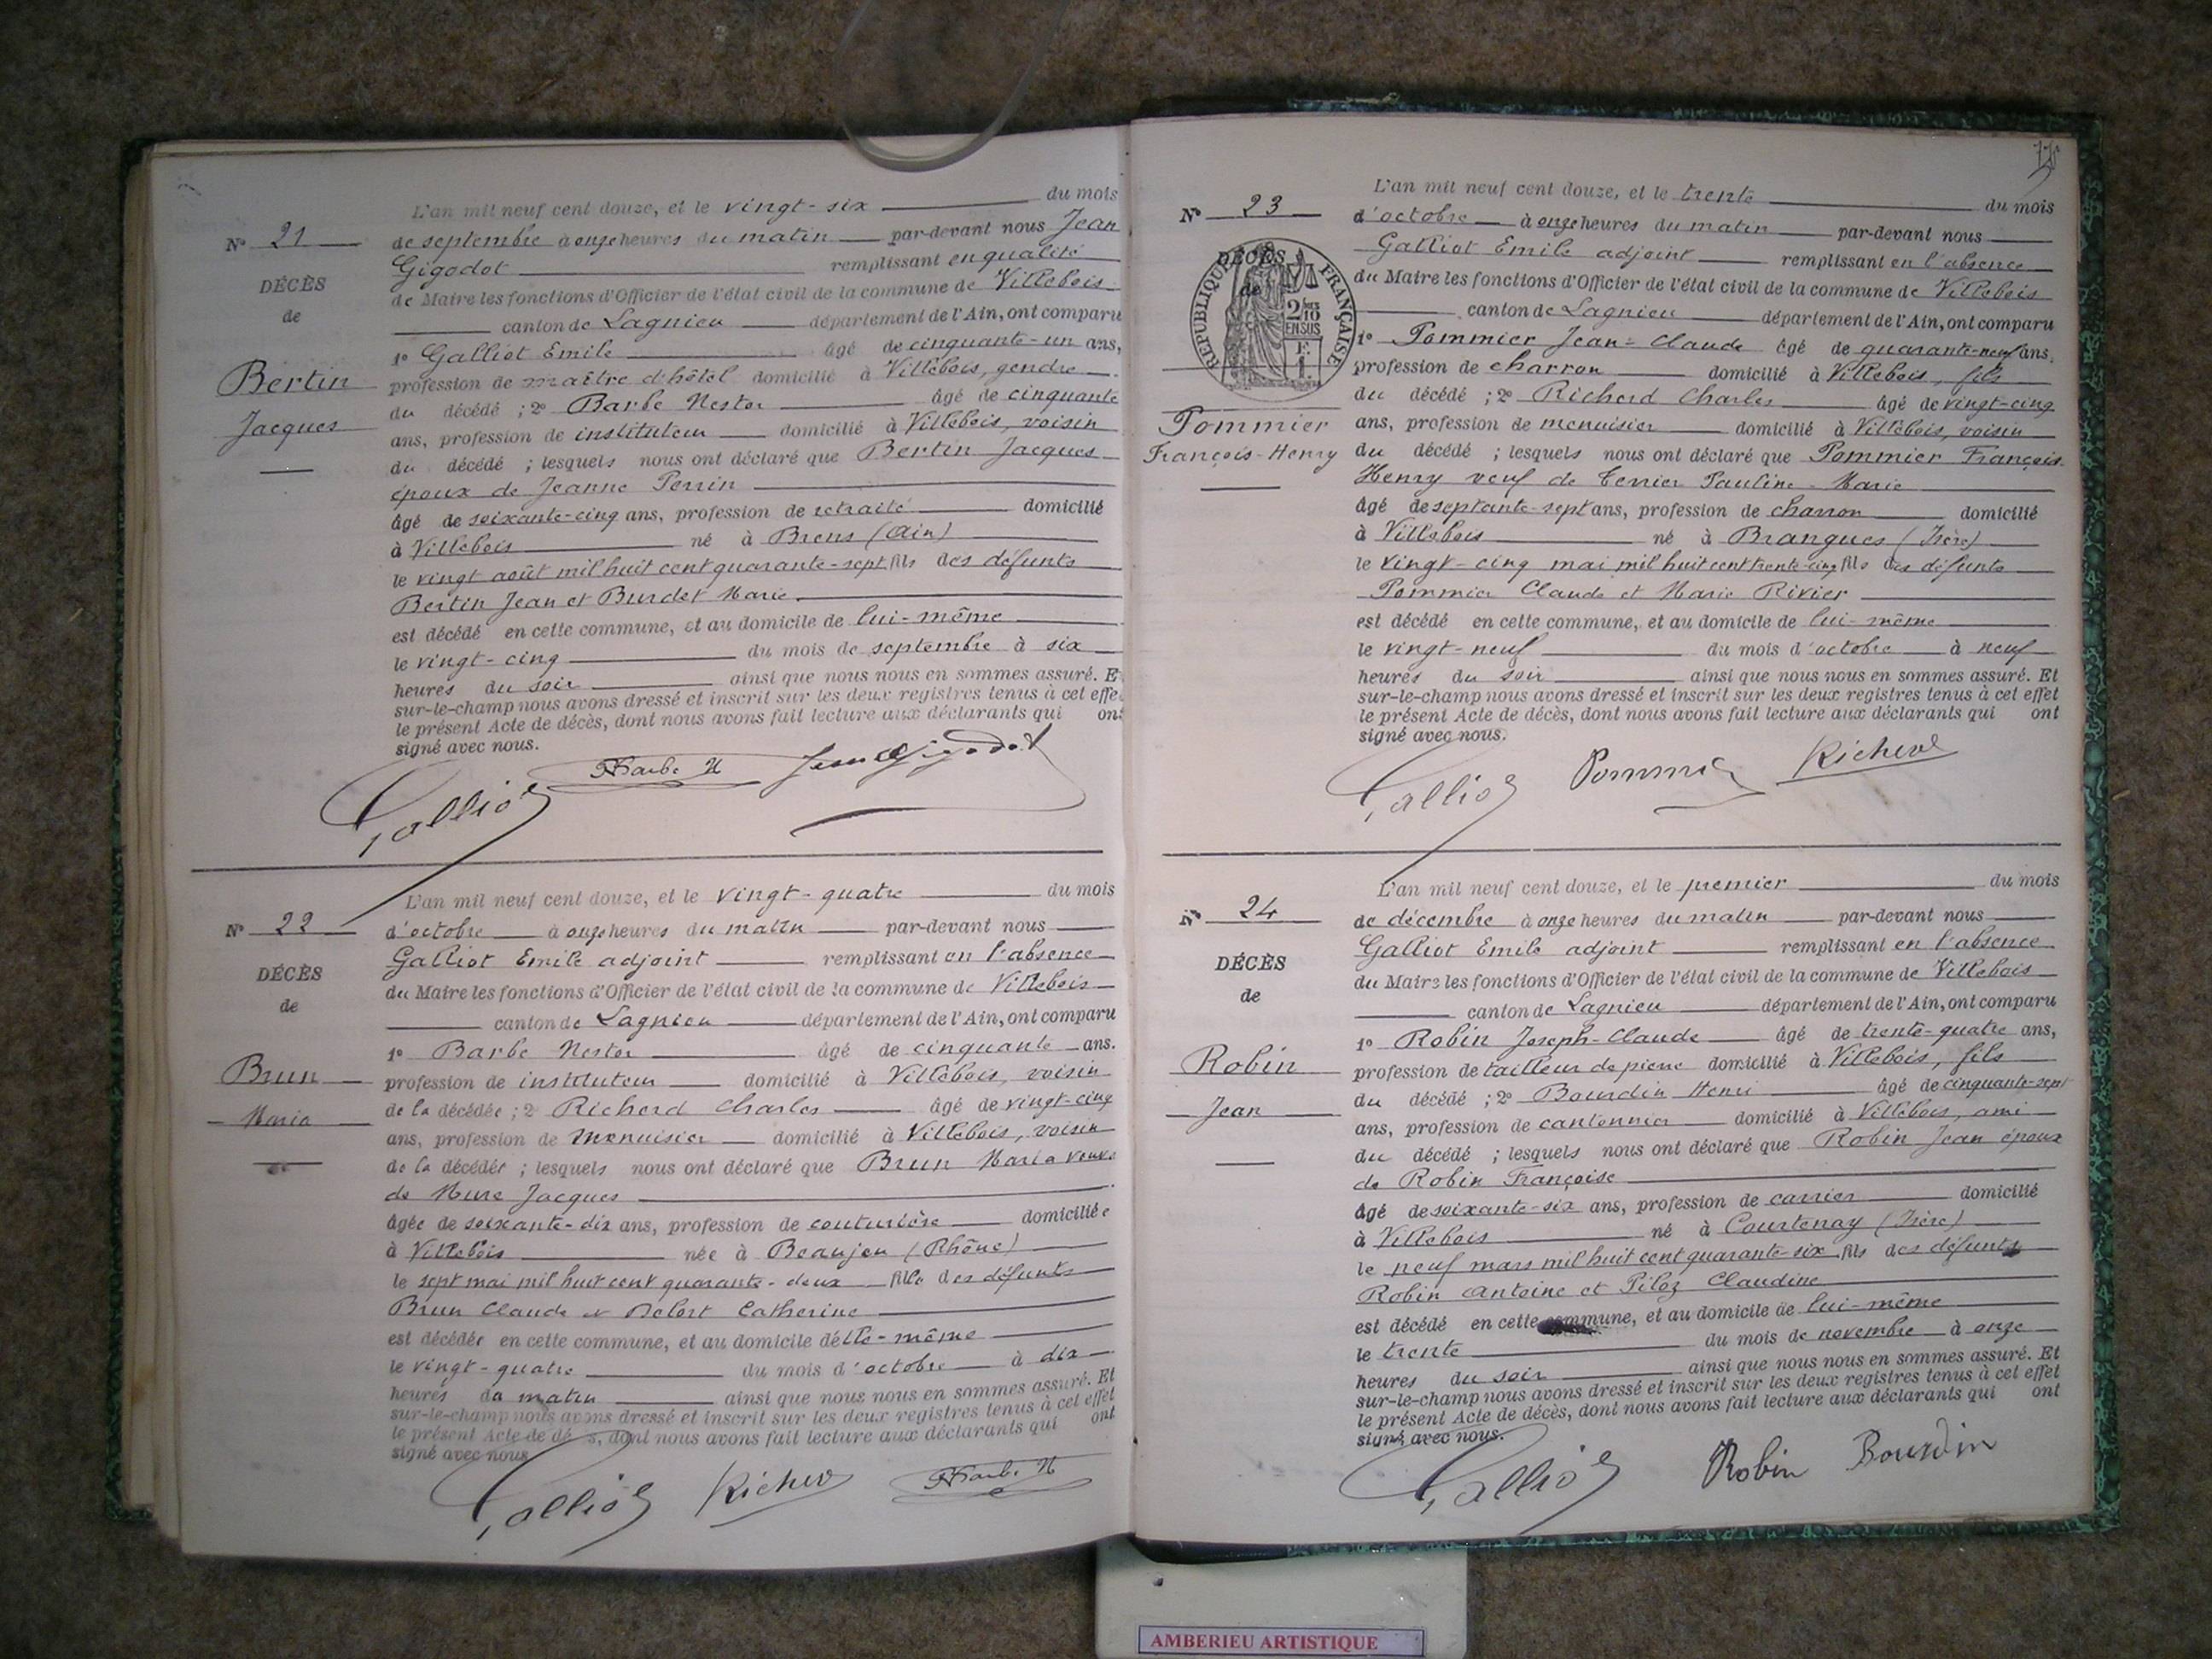 L'an mil neuf cent douze, et le vingt-six du mois
N° 21
de septembre à onze heures du matin par-devant nous Jean
Gigodot remplissant en qualité
DÉCÈS
de Maire les fonctions d'Officier de l'état civil de la commune de Villebois
de
canton de Lagnieu département de l'Ain, ont comparu
1° Galliot Emile âgé de cinquante-un ans,
Bertin
profession de maître d'hôtel domicilié à Villebois, gendre
du décédé ; 2° Barbe Nestor âgé de cinquante
Jacques
ans, profession de instituteur domicilié à Villebois, voisin
du décédé ; lesquels nous ont déclaré que Bertin Jacques
époux de Jeanne Perrin
âgé de soixante-cinq ans, profession de retraité domicilié
à Villebois né à Brens (Ain)
le vingt août mil huit cent quarante-sept fils des défunts
Bertin Jean et Burdet Marie.
est décédé en cette commune, et au domicile de lui-même
le vingt-cinq du mois de septembre à six
heures du soir ainsi que nous nous en sommes assuré. E
sur-le-champ nous avons dressé et inscrit sur les deux registres tenus à cet effe
le présent Acte de décès, dont nous avons fait lecture aux déclarants qui ont
signé avec nous.
Galliot Barbe N Jean Gigodot
L'an mil neuf cent douze, et le vingt-quatre du mois
N° 22
d'octobre à onze heures du matin par-devant nous
Galliot Emile adjoint remplissant en l'absence
DÉCÈS
du Maire les fonctions d'Officier de l'état civil de la commune de Villebois
de
canton de Lagnieu département de l'Ain, ont comparu
1° Barbe Nestor âgé de cinquante ans.
Brun
profession de instituteur domicilié à Villebois, voisin
de la décédée ; 2° Richerd Charles âgé de vingt-cinq
Maria
ans, profession de menuisier domicilié à Villebois, voisin
de la décédée ; lesquels nous ont déclaré que Brun Maria veuve
de Mure Jacques
âgée de soixante-dix ans, profession de couturière domiciliée
à Villebois née à Beaujeu (Rhône)
le sept mai mil huit cent quarante-deux fille des défunts
Brun Claude et Debort Catherine
est décédée en cette commune, et au domicile d'elle-même
le vingt-quatre du mois d'octobre à dix
heures du matin ainsi que nous nous en sommes assuré. Et
sur-le-champ nous avons dressé et inscrit sur les deux registres tenus à cet effet
le présent Acte de décès, dont nous avons fait lecture aux déclarants qui ont
signé avec nous
Galliot Richerd Barbe N
L'an mil neuf cent douze, et le trente du mois
N° 23
d'octobre à onze heures du matin par-devant nous
Galliot Emile adjoint remplissant en l'absence
DÉCÈS
de
RÉPUBLIQUE FRANÇAISE
2/10 EN SUS
du Maire les fonctions d'Officier de l'état civil de la commune de Villebois
canton de Lagnieu département de l'Ain, ont comparu
1° Pommier Jean-Claude âgé de quarante-neuf ans.
profession de charron domicilié à Villebois, fils
du décédé ; 2° Richerd Charles âgé de vingt-cinq
Pommier
ans, profession de menuisier domicilié à Villebois, voisin
François-Henry
du décédé ; lesquels nous ont déclaré que Pommier François-
Henry veuf de Terrier Pauline-Marie
âgé de septante-sept ans, profession de charron domicilié
à Villebois né à Brangues (Isère)
le vingt-cinq mai mil huit cent trente-cinq fils des défunts
Pommier Claude et Marie Rivier
est décédé en cette commune, et au domicile de lui-même
le vingt-neuf du mois d'octobre à neuf
heures du soir ainsi que nous nous en sommes assuré. Et
sur-le-champ nous avons dressé et inscrit sur les deux registres tenus à cet effet
le présent Acte de décès, dont nous avons fait lecture aux déclarants qui ont
signé avec nous.
Galliot Pommier Richerd
L'an mil neuf cent douze, et le premier du mois
N° 24
de décembre à onze heures du matin par-devant nous
Galliot Emile adjoint remplissant en l'absence
DÉCÈS
du Maire les fonctions d'Officier de l'état civil de la commune de Villebois
de
canton de Lagnieu département de l'Ain, ont comparu
1° Robin Joseph-Claude âgé de trente-quatre ans,
Robin
profession de tailleur de pierre domicilié à Villebois, fils
du décédé ; 2° Bourdin Henri âgé de cinquante-sept
Jean
ans, profession de cantonnier domicilié à Villebois, ami
du décédé ; lesquels nous ont déclaré que Robin Jean époux
de Robin Françoise
âgé de soixante-six ans, profession de carrier domicilié
à Villebois né à Courtenay (Isère)
le neuf mars mil huit cent quarante-six fils des défunts
Robin Antoine et Piloz Claudine
est décédé en cette commune, et au domicile de lui-même
le trente du mois de novembre à onze
heures du soir ainsi que nous nous en sommes assuré. Et
sur-le-champ nous avons dressé et inscrit sur les deux registres tenus à cet effet
le présent Acte de décès, dont nous avons fait lecture aux déclarants qui ont
signé avec nous.
Galliot Robin Bourdin
AMBERIEU ARTISTIQUE